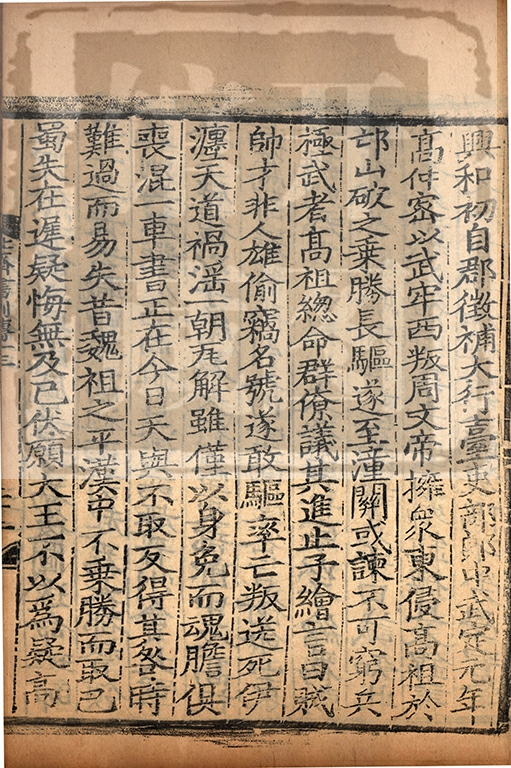 興和初自郡徵補大行臺吏部郎中武定元年
髙仲宻以武牢西叛周文帝擁衆東侵髙祖於
邙山破之乗勝長驅遂至潼關或諫不可窮兵
極武者髙祖緫命群僚議其進止子繪言曰賊
帥才非人雄偷竊名號遂敢驅率亡叛送死伊
瀍天道禍滛一朝瓦解雖僅以身免而魂膽俱
喪混一車書正在今日天與不取反得其咎時
難遇而易失昔魏祖之平漢中不乗勝而取巴
蜀失在遲疑悔無及已伏願大王不以爲疑髙